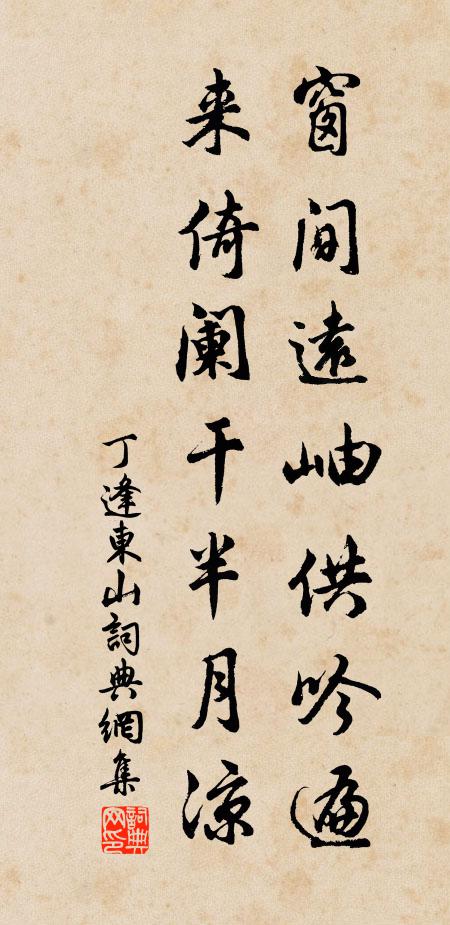 窗间遠岫供吟遍
来倚阑干半月凉
丁逢東山詞典網集
詞典网印